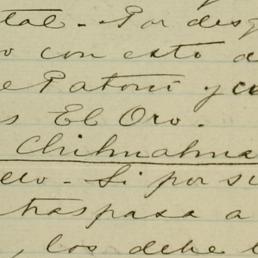 tal - Por desg
o con esto d
e Patoni y cu
s El Oro.
Chihuahua
elo - Si por su
traspasa a
, los debe